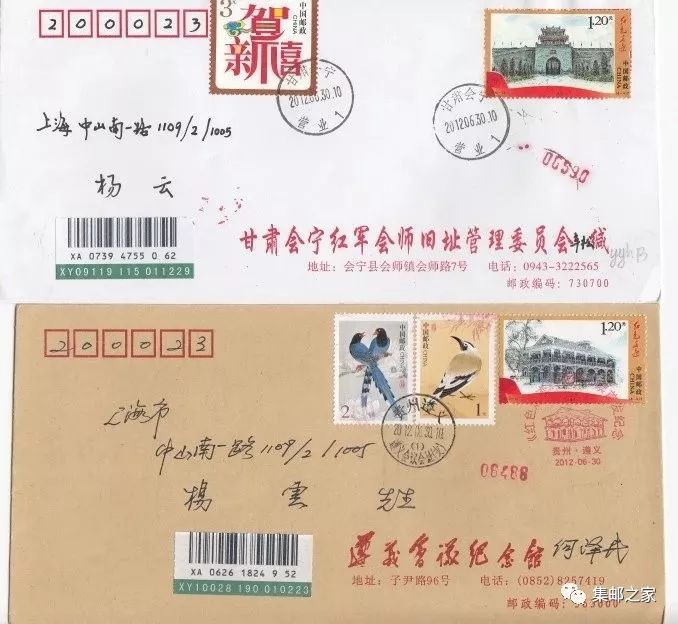 200023
3元
贺新禧
中国邮政
CHINA
1.20元
中国邮政
CHINA
甘肃会宁
2012.06.30.10
营业1
甘肃会宁
2012.06.30.10
营业1
上海中山南一路1109/2/1005
杨云
06590
XA 0739 4755 0 62
XY09119 115 011229
甘肃会宁红军会师旧址管理委员会 缄
yyhB
地址:会宁县会师镇会师路7号 电话:0943-3222565
邮政编码:730700
200023
中国邮政
CHINA
2元
中国邮政
CHINA
1元
1.20元
中国邮政
CHINA
贵州遵义
贵州·遵义
2012-06-30
06488
上海市
中山南一路1109/2/1005
楊雲 先生
XA 0626 1824 9 52
XY10028 190 010223
遵義會議紀念館
地址:子尹路96号 电话:(0852)8257419
邮政编码:563000
集邮之家